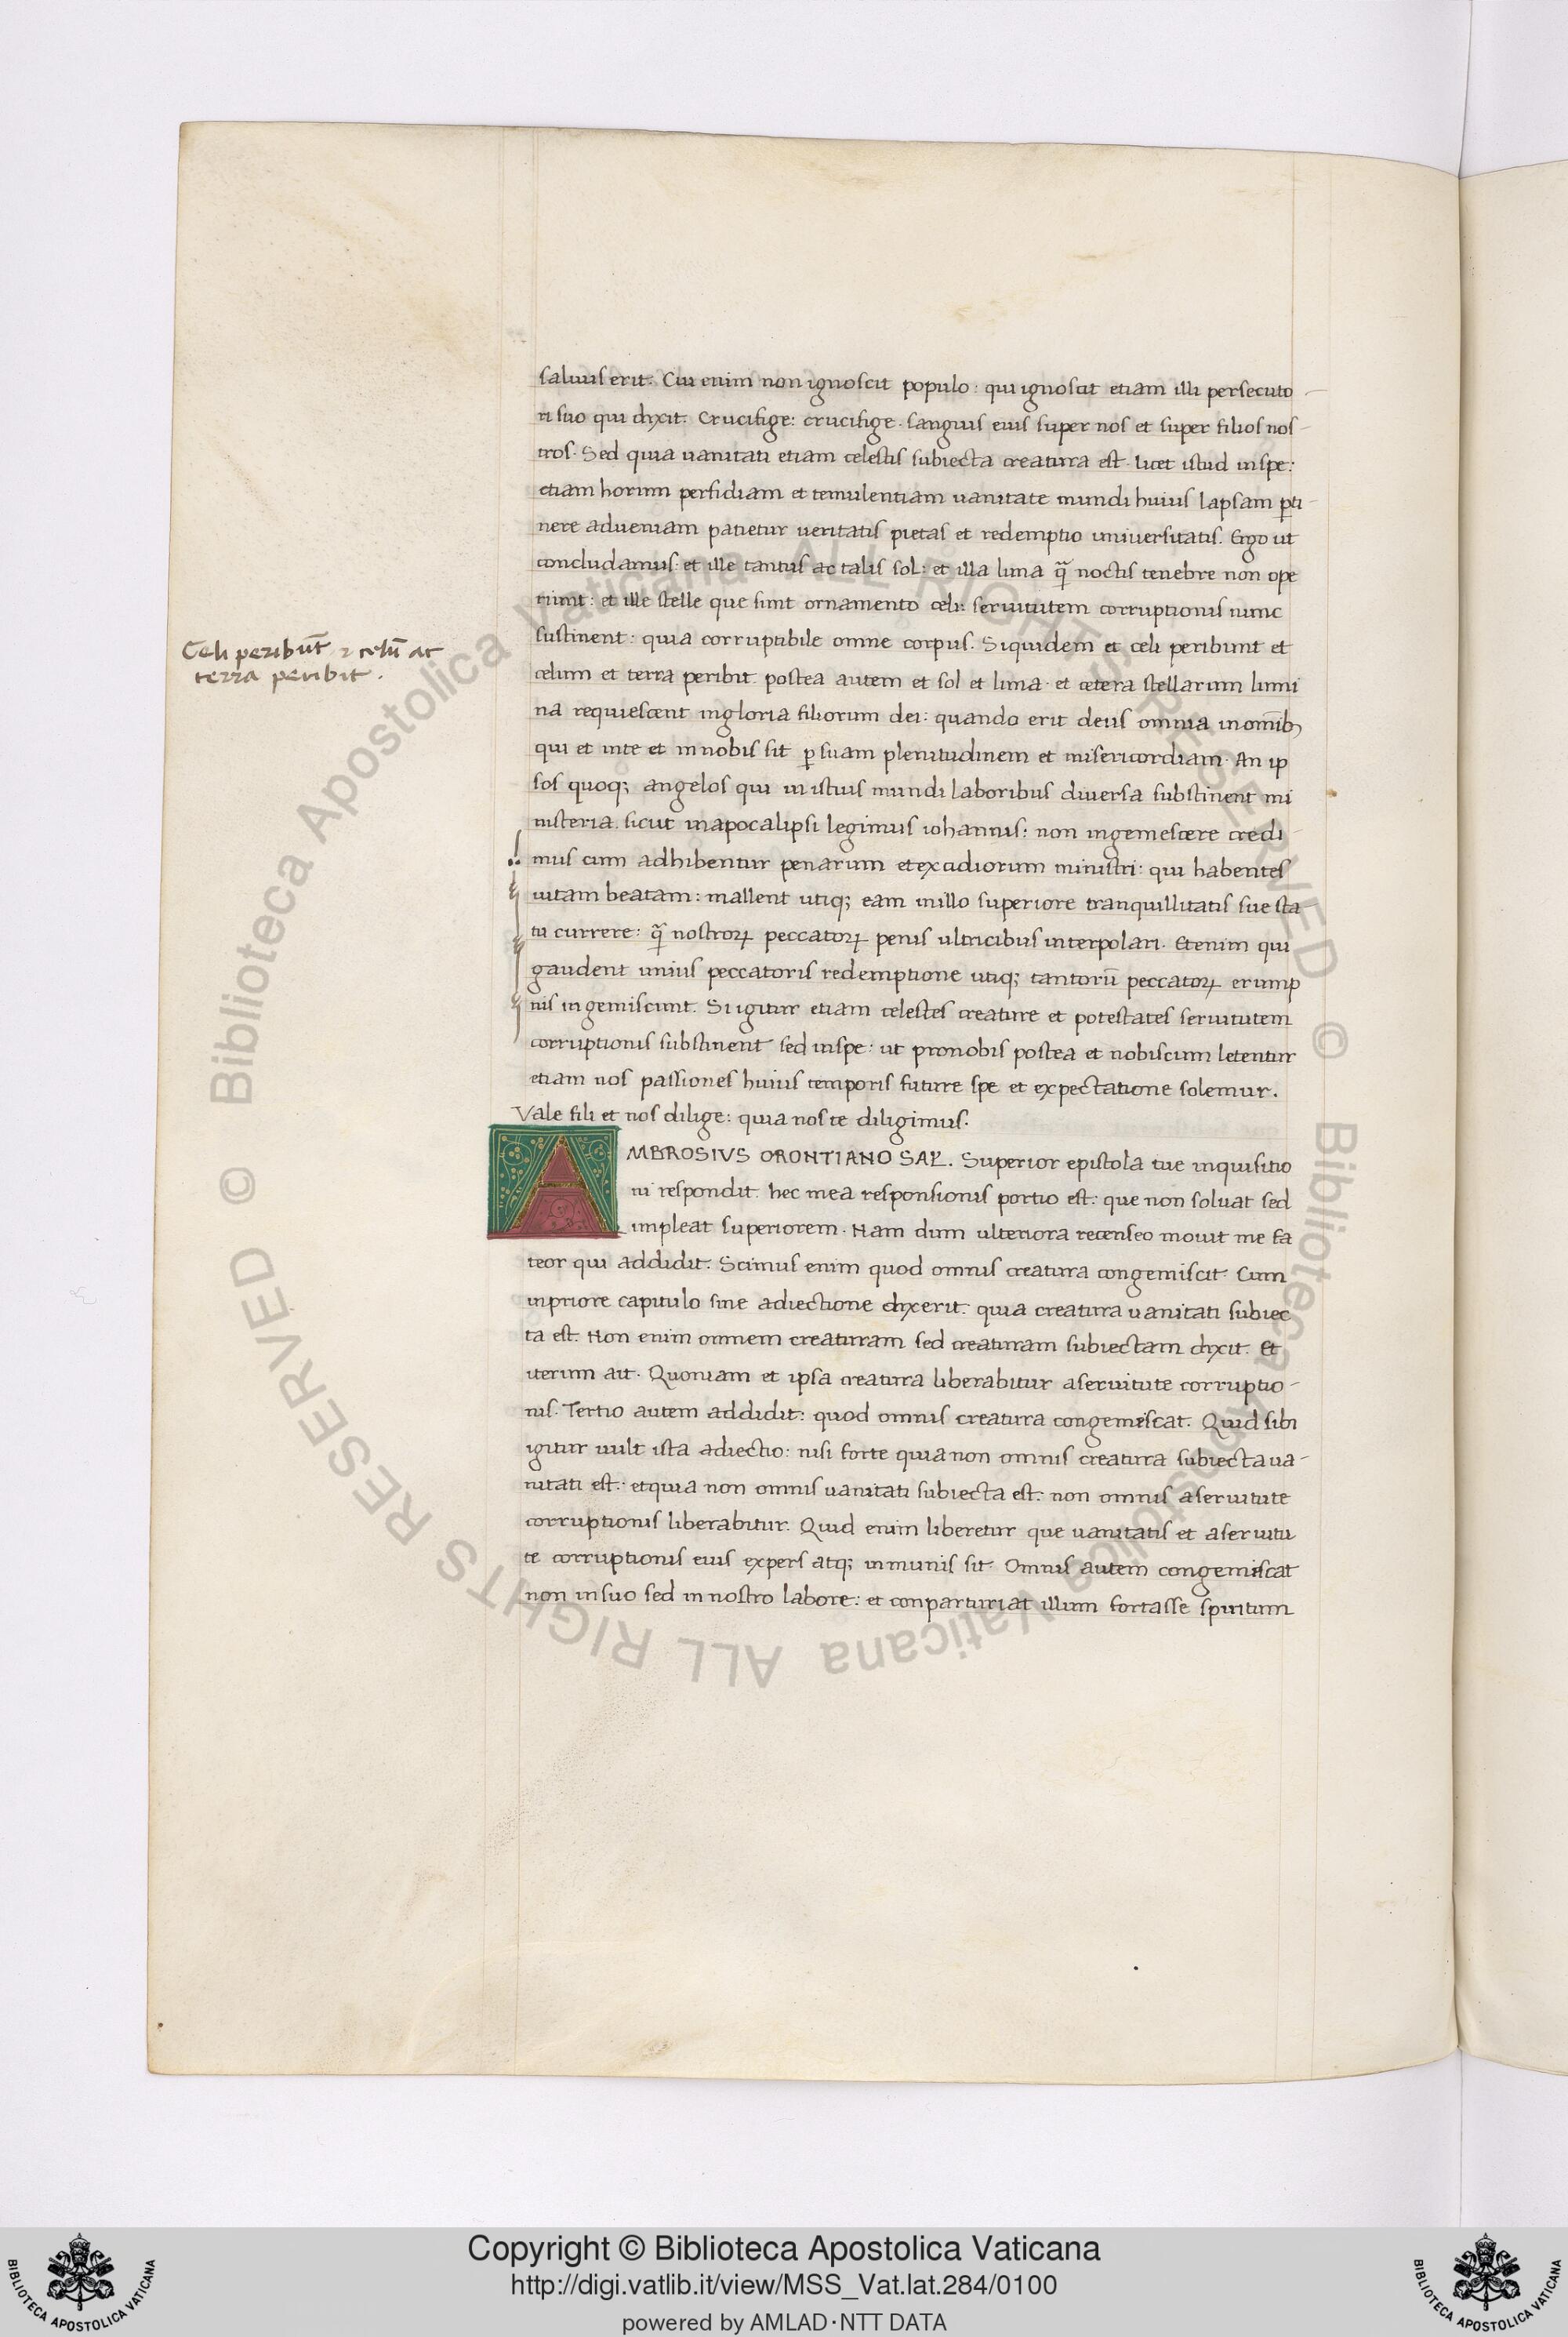 saluus erit. Cui enim non ignoscit populo: qui ignoscit etiam illi persecuto-
ri suo qui dixit. Crucifige: crucifige. sanguis eius super nos et super filios nos-
tros. Sed quia uanitati etiam celestis subiecta creatura est. licet istud inspe:
etiam horum perfidiam et temulentiam uanitate mundi huius lapsam pti-
nere adueniam patietur ueritatis pietas et redemptio uniuersitatis. Ergo ut
concludamus. et ille tantus ac talis sol: et illa luna q̄ noctis tenebre non ope
riunt: et ille stelle que sunt ornamento celi: seruitutem corruptionis nunc
sustinent: quia corruptibile omne corpus. Siquidem et celi peribunt et
celum et terra peribit. postea autem et sol et luna. et cetera stellarum lumi
na requiescent ingloria filiorum dei: quando erit deus omnia inomib;
qui et inte et innobis sit p suam plenitudinem et misericordiam. An ip
sos quoq; angelos qui in istius mundi laboribus diuersa substinent mi
nisteria. sicut inapocalipsi legimus iohannis: non ingemescere credi-
mus cum adhibentur penarum etexcidiorum ministri: qui habentes
uitam beatam: mallent utiq; eam inillo superiore tranquillitatis sue sta
tu currere: q̄ nostroꝝ peccatoꝝ penis ultricibus interpolari. Etenim qui
gaudent unius peccatoris redemptione utiq; tantorū peccatoꝝ erump
nis ingemiscunt. Si igitur etiam celestes creature et potestates seruitutem
corruptionis substinent sed inspe: ut pronobis postea et nobiscum letentur
etiam nos passiones huius temporis future spe et expectatione solemur.
Vale fili et nos dilige: quia nos te diligimus.
AMBROSIVS ORONTIANO SAL. Superior epistola tue inquisitio
ni respondit. hec mea responsionis portio est: que non soluat sed
impleat superiorem. Nam dum ulteriora recenseo mouit me fa
teor qui addidit. Scimus enim quod omnis creatura congemiscit. Cum
inpriore capitulo sine adiectione dixerit. quia creatura uanitati subiec
ta est. Non enim omnem creaturam sed creaturam subiectam dixit. Et
iterum ait. Quoniam et ipsa creatura liberabitur aseruitute corruptio-
nis. Tertio autem addidit: quod omnis creatura congemiscat. Quid sibi
igitur uult ista adiectio: nisi forte quia non omnis creatura subiecta ua-
nitati est: etquia non omnis uanitati subiecta est: non omnis aseruitute
corruptionis liberabitur. Quid enim liberetur que uanitatis et aseruitu
te corruptionis eius expers atq; inmunis sit. Omnis autem congemiscat
non insuo sed in nostro labore: et conparturiat illum fortasse spiritum
Celi peribūt ⁊ celū ac
terra peribit.
© Biblioteca Apostolica Vaticana ALL RIGHTS RESERVED
© Biblioteca Apostolica Vaticana ALL RIGHTS RESERVED
Copyright © Biblioteca Apostolica Vaticana
http://digi.vatlib.it/view/MSS_Vat.lat.284/0100
powered by AMLAD·NTT DATA
BIBLIOTECA APOSTOLICA VATICANA
BIBLIOTECA APOSTOLICA VATICANA